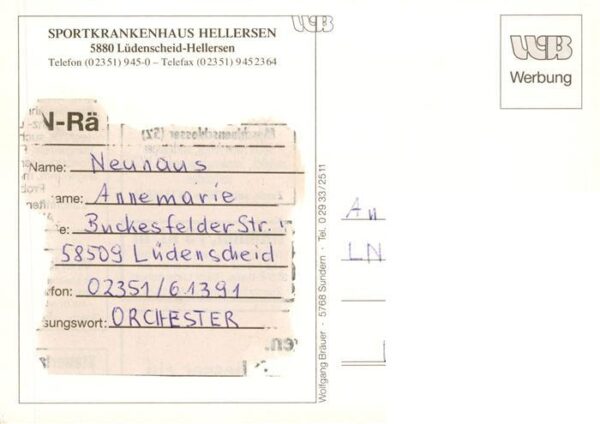 SPORTKRANKENHAUS HELLERSEN
5880 Lüdenscheid-Hellersen
Telefon (0 23 51) 945-0 – Telefax (0 23 51) 9 45 23 64
WB
WB
Werbung
N-Rä
Name: Neuhaus
ame: Annemarie
e: Buckesfelder Str.
58509 Lüdenscheid
fon: 02351/61391
sungswort: ORCHESTER
Wolfgang Bräuer · 5768 Sundern · Tel. 0 29 33 / 25 11
An
LN